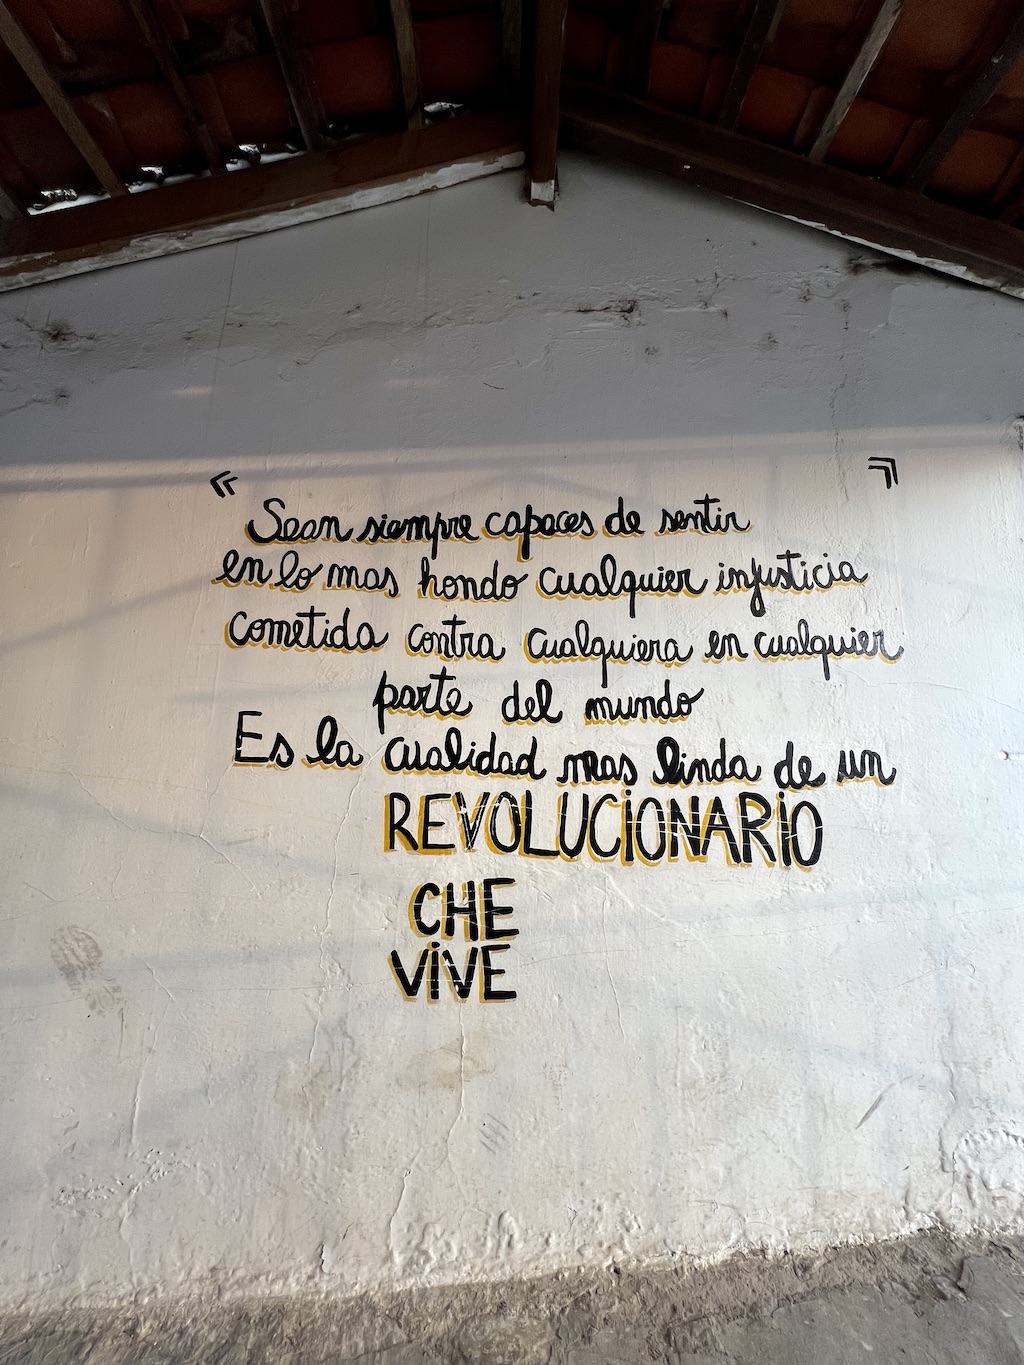 « Sean siempre capaces de sentir »
en lo mas hondo cualquier injusticia
cometida contra cualquiera en cualquier
parte del mundo
Es la cualidad mas linda de un
REVOLUCIONARIO
CHE
VIVE